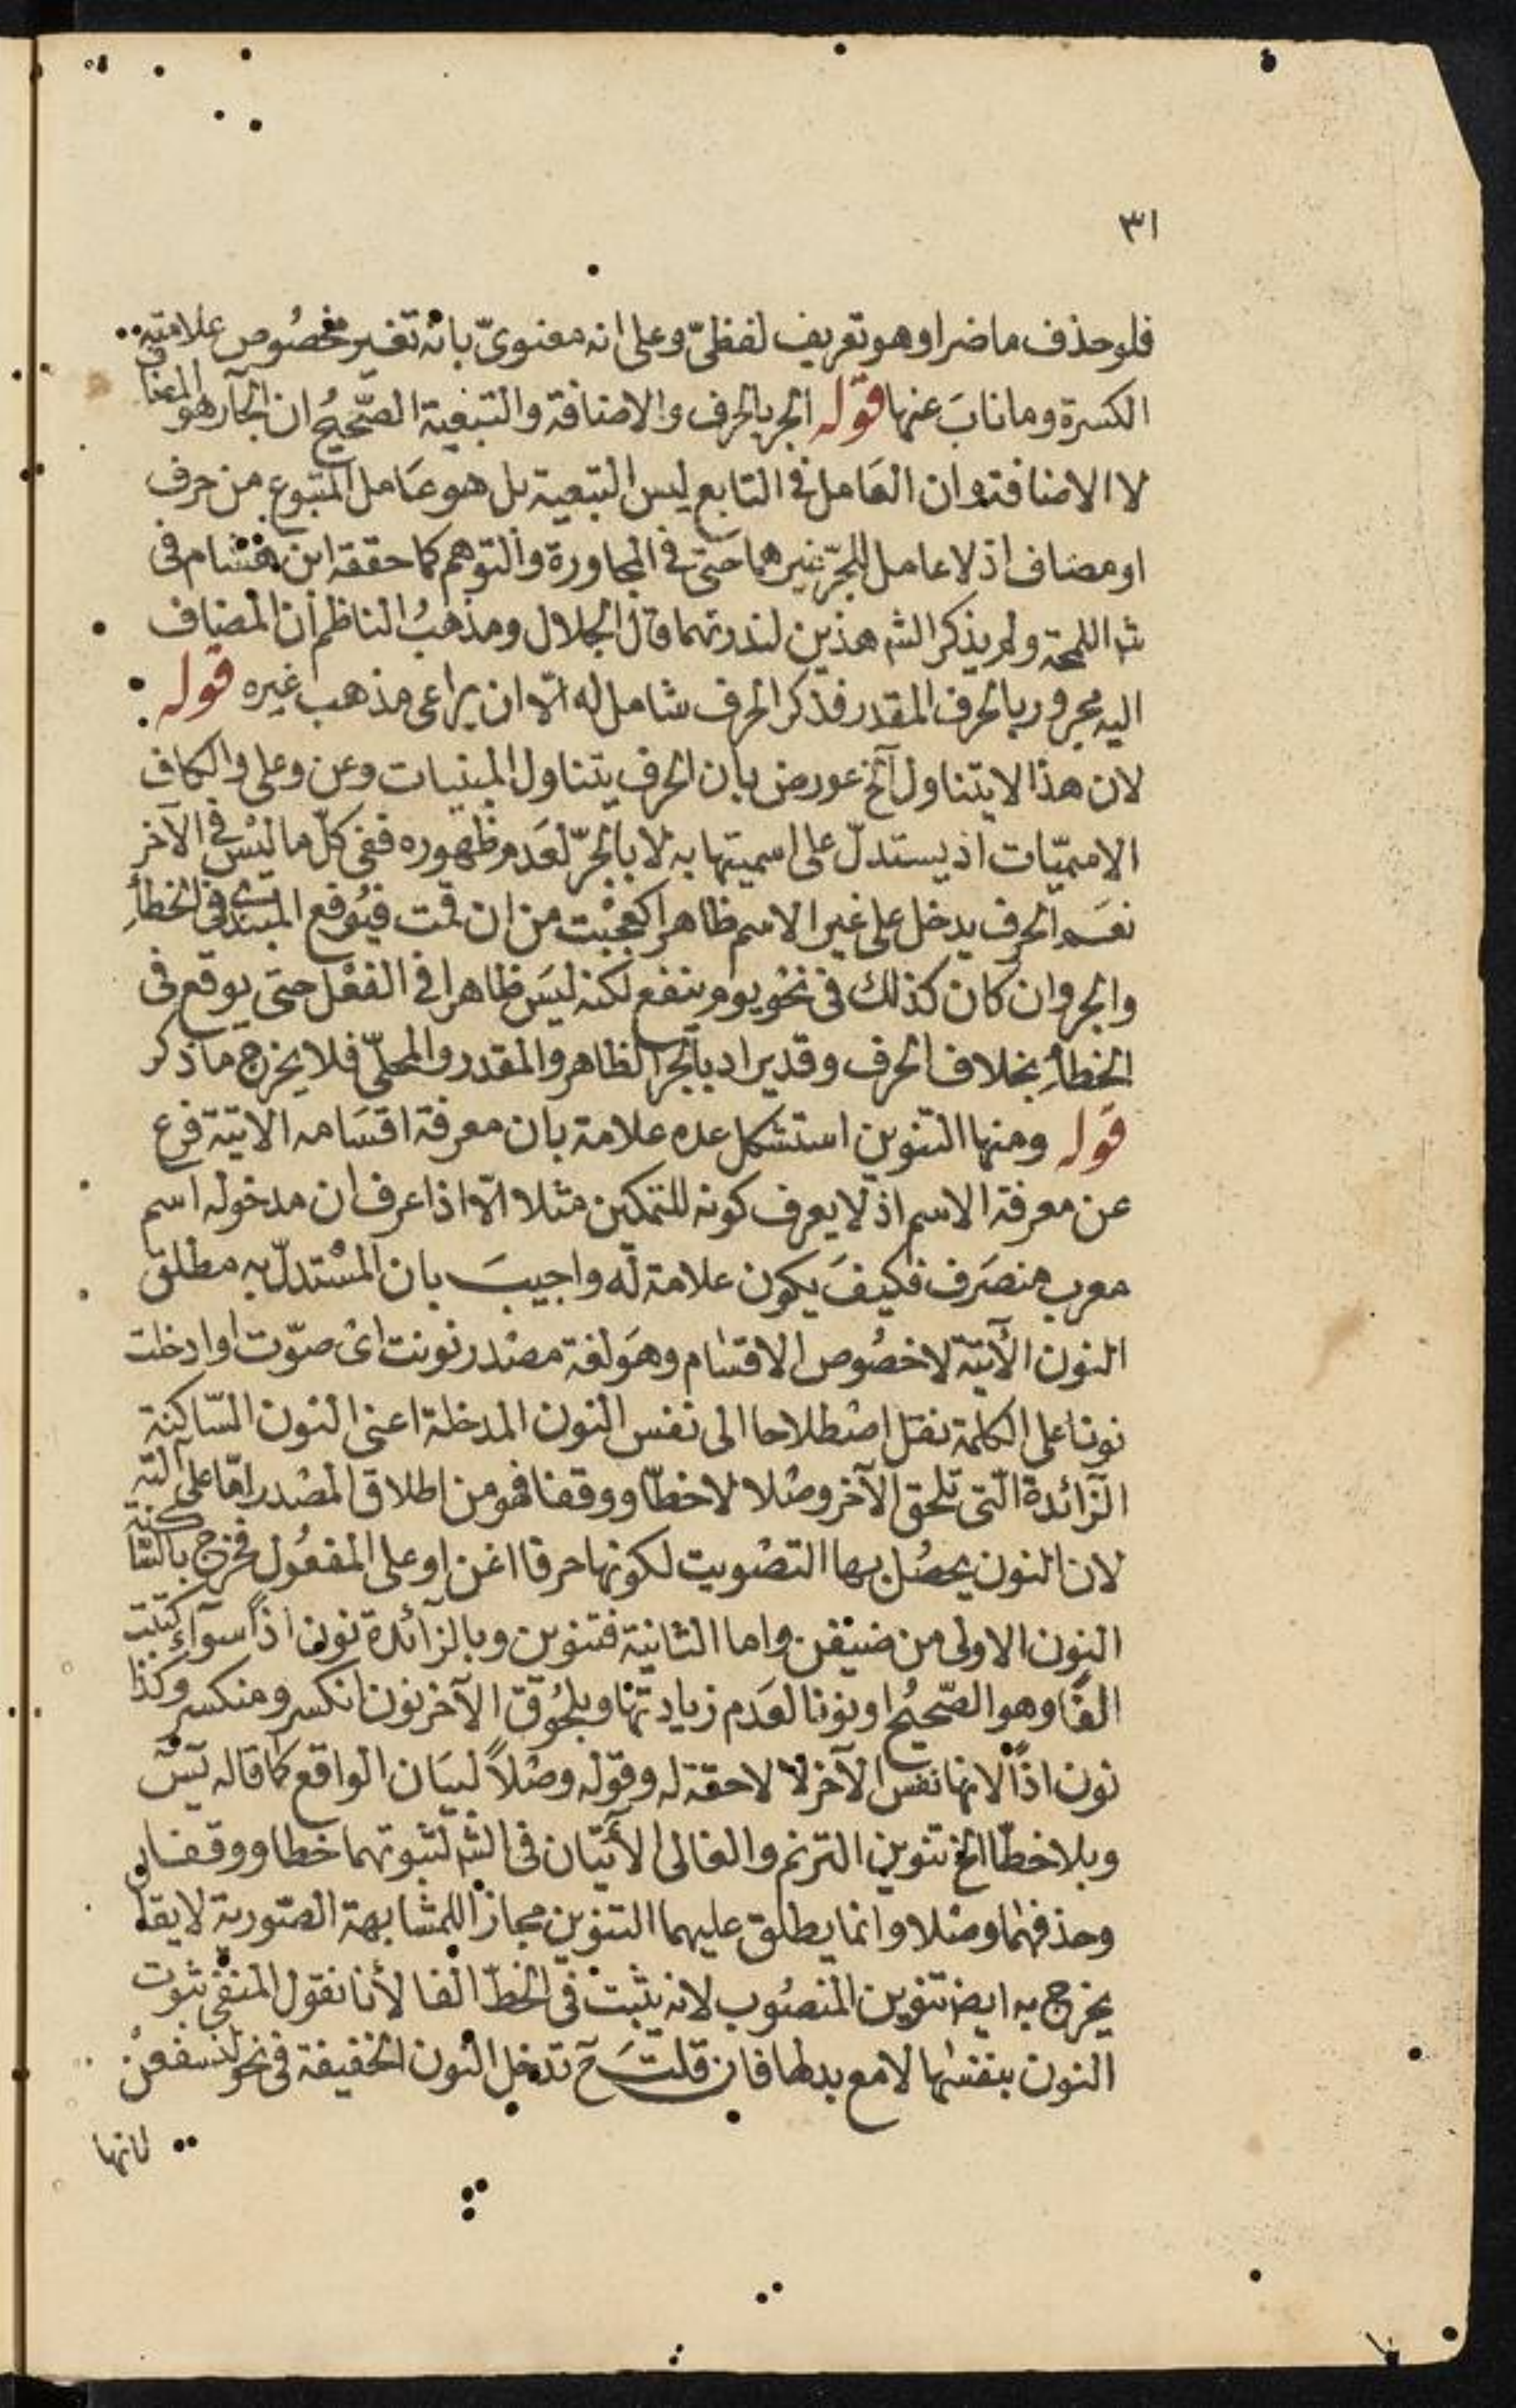 ٣١
فلو حذف ما ضر او هو تعريف لفظىّ وعلى انه معنوىّ بانه تغيير مخصوص علامته
الكسرة وما ناب عنها قوله الجر بالحرف والاضافة والتبعية الصّحيحُ ان الجآر هو المضا
لا الاضافة وان العَامل فى التابع ليس التبعية بل هو عَامل المتبوع من حرف
او مضاف اذ لا عامل للجرّ غيرهما حتى فى المجاورة والتوهم كما حققه ابن هشام فى
شر اللمحة ولم يذكر الشر هذين لندرتهما قال الجلال ومذهبُ الناظم ان المضاف
اليه مجرور بالحرف المقدر فذكر الحرف شامل له الّا ان يراعى مذهب غيره قوله
لان هذا لا يتناول آلخ عورض بان الحرف يتناول المبنيات وعن وعلى والكاف
الاسميّات اذ يستدلّ على اسميتها به لا بالجرّ لعَدم ظهوره ففى كلّ ما ليْس فى الآخر
نعَم الحرف يدخل على غير الاسم ظاهرا كعجبْت من ان قمت فيُوقع المبتدى فى الخطأِ
والجر وان كان كذلك فى نحو يوم ينفع لكنه ليسَ ظاهرا فى الفعْل حتى يوقع فى
الخطأِ بخلاف الحرف وقد يراد بالجر الظاهر والمقدر والمحلىّ فلا يخرج ما ذكر
قوله ومنها التنوين استشكل عده علامة بان معرفة اقسَامه الاتية فرع
عن معرفة الاسم اذ لا يعرف كونه للتمكين مثلا الّا اذا عرف ان مدخوله اسم
معرب منصَرف فكيفَ يكون علامة له واجيبَ بان المسْتدلّ به مطلق
النون الآتية لا خصُوص الاقسَام وهوَ لغة مصْدر نونت اىْ صوّت او ادخلت
نونا على الكلمة نقل اصْطلاحا الى نفس النون المدخلة اعنى النون السّاكنة
الزّائدة الّتى تلحق الآخر وصْلا لا خطّا ووقفا فهو من اطلاق المصْدر امّا على آلته
لان النون يحصُل بها التصْويت لكونها حرفا اغن او على المفعُول فخرج بالسّاكنة
النون الاولى من ضيفن واما الثانية فتنوين وبالزآئدة نون اذًا سوآءٌ كتبت
الفًا وهو الصّحيحُ او نونا لعَدم زيادتها وبلُحوق الآخر نون انكسر ومنكسر وكذا
نون اذًا لانها نفس الآخر لا لاحقة له وقوله وصْلاً لبيَان الواقع كما قاله يسۤ
وبلا خطّا الخ تنوين الترنم والغالى الأتيّان فى الشر لثبوتهما خطا ووقفا
وحذفهمَا وصْلا وانما يطلق عليهما التنوين مجازا للمشابهة الصّورية لا يقال
يخرج به ايضا تنوين المنصُوب لانه يثبت فى الخطّ الفا لأنا نقول المنفى ثبوت
النون بنفسْها لا مع بدلها فان قلتَ ح تدخل النون الخفيفة فى نحو لنسفعنْ
لانها